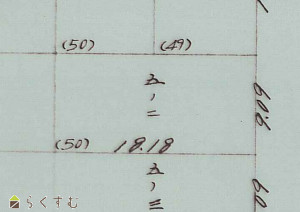 (50)
(49)
五ノ二
9.09
(50)
18.18
五ノ三
らくすむ